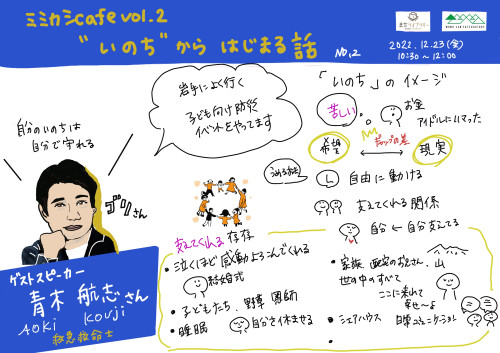 ミミカシcafe vol.2
"いのち"から はじまる話
No.2
2022.12.23(金)
10:30~12:00
自分のいのちは
自分で守れる
岩手によく行く
子ども向け防災
イベントをやってます
ゴリさん
ゲストスピーカー
青木 航志さん
AOKI KOUJI
救急救命士
「いのち」のイメージ
苦しい
お金
アイドルにハマった
希望
ギャップの差
現実
自由に動ける
支えてくれる関係
自分 ← 自分支えてる
支えてくれる存在
・泣くほど感動よろこんでくれる
結婚式
・子どもたち、野草
・睡眠
自分を休ませる
・家族
山
世の中のすべて
ここに来れて
幸せ〜よ
・シェアハウス